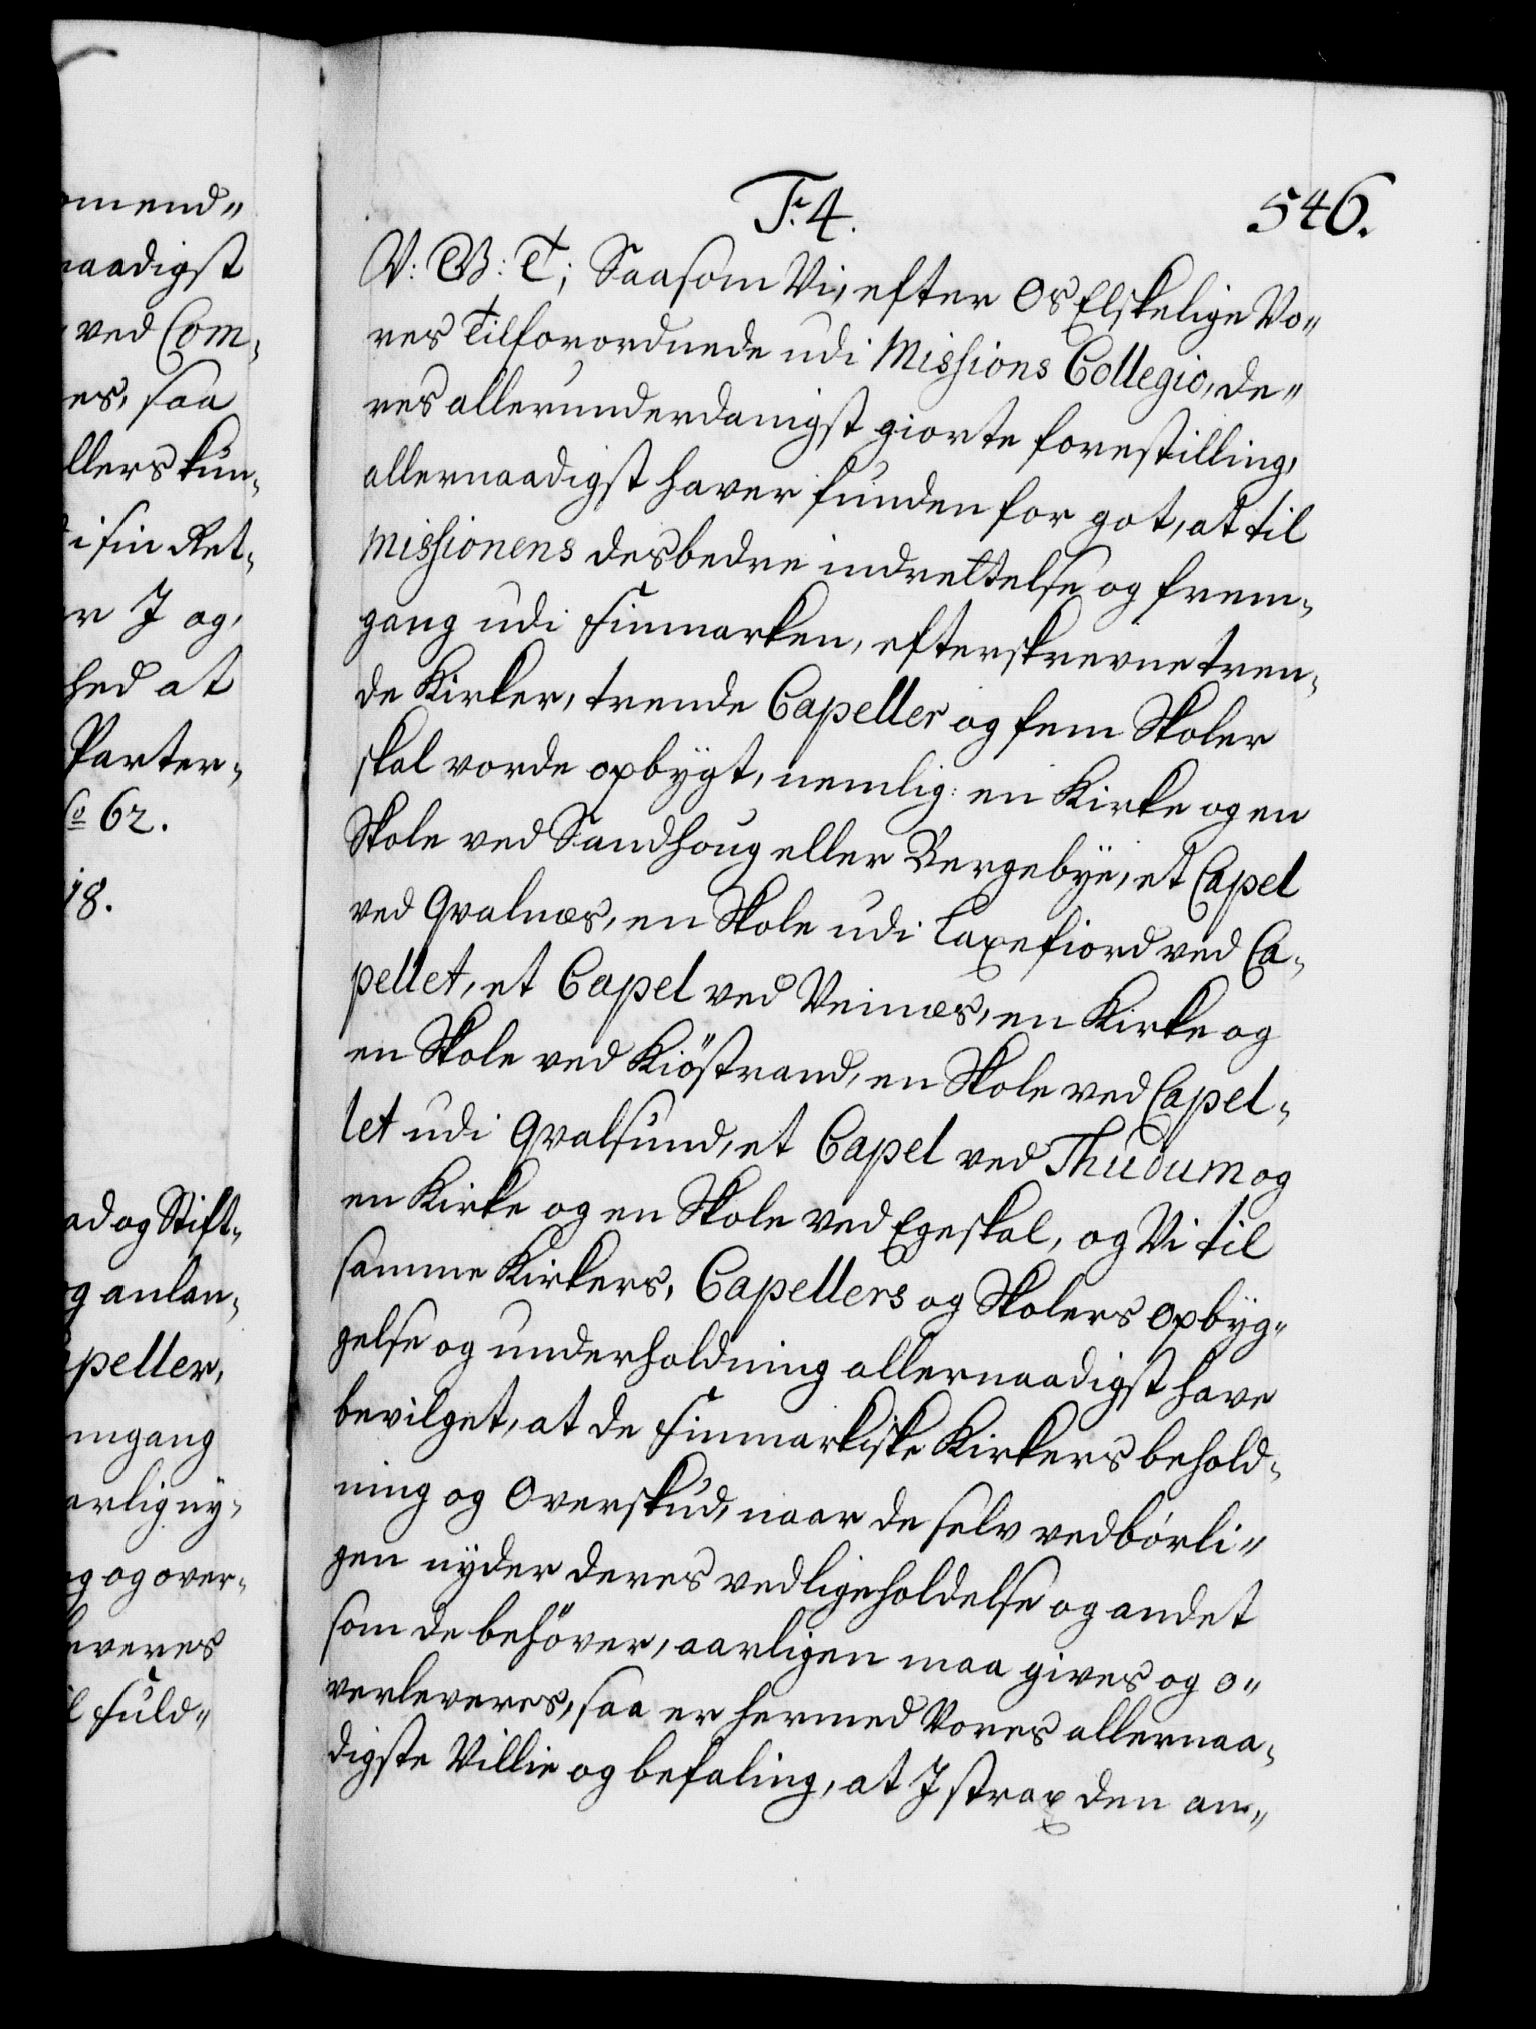 omend"
naadigst
ved Com,
es, saa
llers kun,
i sin Ret,
r I og,
hed at
Parter,
so 62.
18.
ad og Stift,
g anlan,
peller,
mgang
arlig ny,
g og over,
leveres
l fuld"
F. 4.
546.
V: G: T; Saasom Vi, efter Os Elskelige Vo"
res Tilforordnede udi Missions Collegio, de"
res allerunderdanigst giorte forestilling,
allernaadigst haver funden for got, at til
Missionens desbedre indrettelse og frem,
gang udi Finmarken, efterskrevne tren,
de Kirker, trende Capeller og fem Skoler
skal vorde opbygt, nemlig: en Kirke og en
Skole ved Sandhoug eller Bergebye, et Capel
ved Qvalnæs, en Skole udi Laxefiord ved Ca,
pellet, et Capel ved Veinæs, en Kirke og
en Skole ved Kiöstrand, en Skole ved Capel,
let udi Qvalsund, et Capel ved Thudum og
en Kirke og en Skole ved Egeskal, og Vi til
samme Kirkers, Capellers og Skolers opbyg"
gelse og underholdning allernaadigst have
bevilget, at de Finmarkiske Kirkers behold,
ning og Overskud, naar de selv vedbörli"
gen nyder deres vedligeholdelse og andet
som de behöver, aarligen maa gives og o"
verleveres, saa er hermed Vores allernaa,
digste Villie og befaling, at I strax den an"